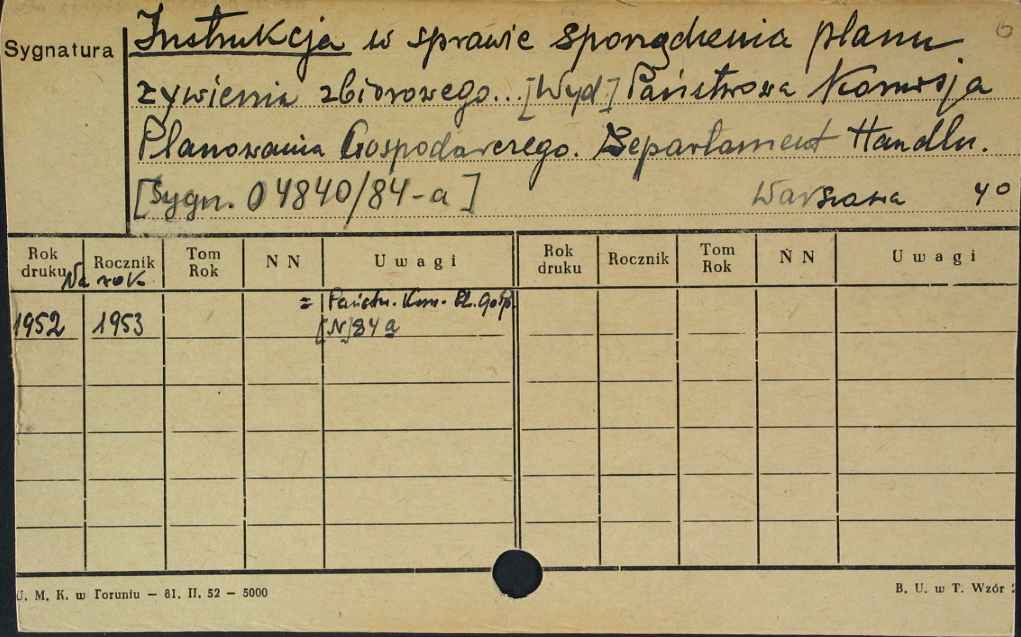 Sygnatura
Instrukcja w sprawie sporządzenia planu
żywienia zbiorowego... [Wyd.] Państwowa Komisja
Planowania Gospodarczego. Departament Handlu.
[Sygn. 04840/84-a] Warszawa 4º
Rok druku Rocznik Tom Rok NN Uwagi Rok druku Rocznik Tom Rok NN Uwagi
Na rok
= Państw. Kom. Pl. Gosp.
1952 1953 [N] 84 a
U. M. K. w Toruniu — 81. II. 52 — 5000 B. U. w T. Wzór